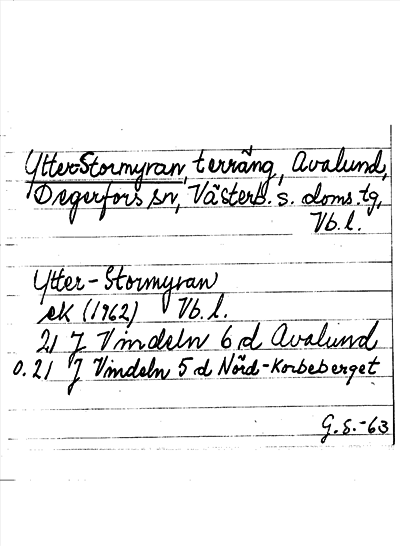 Ytter-Stormyran, terräng, Avalund,
Degerfors sn, Västerb. s. doms. tg,
Vb. l.
Ytter-Stormyran
ek (1962) Vb. l.
21 J Vindeln 6 d Avalund
o. 21 J Vindeln 5 d Nörd-Korbeberget
G. S. -63